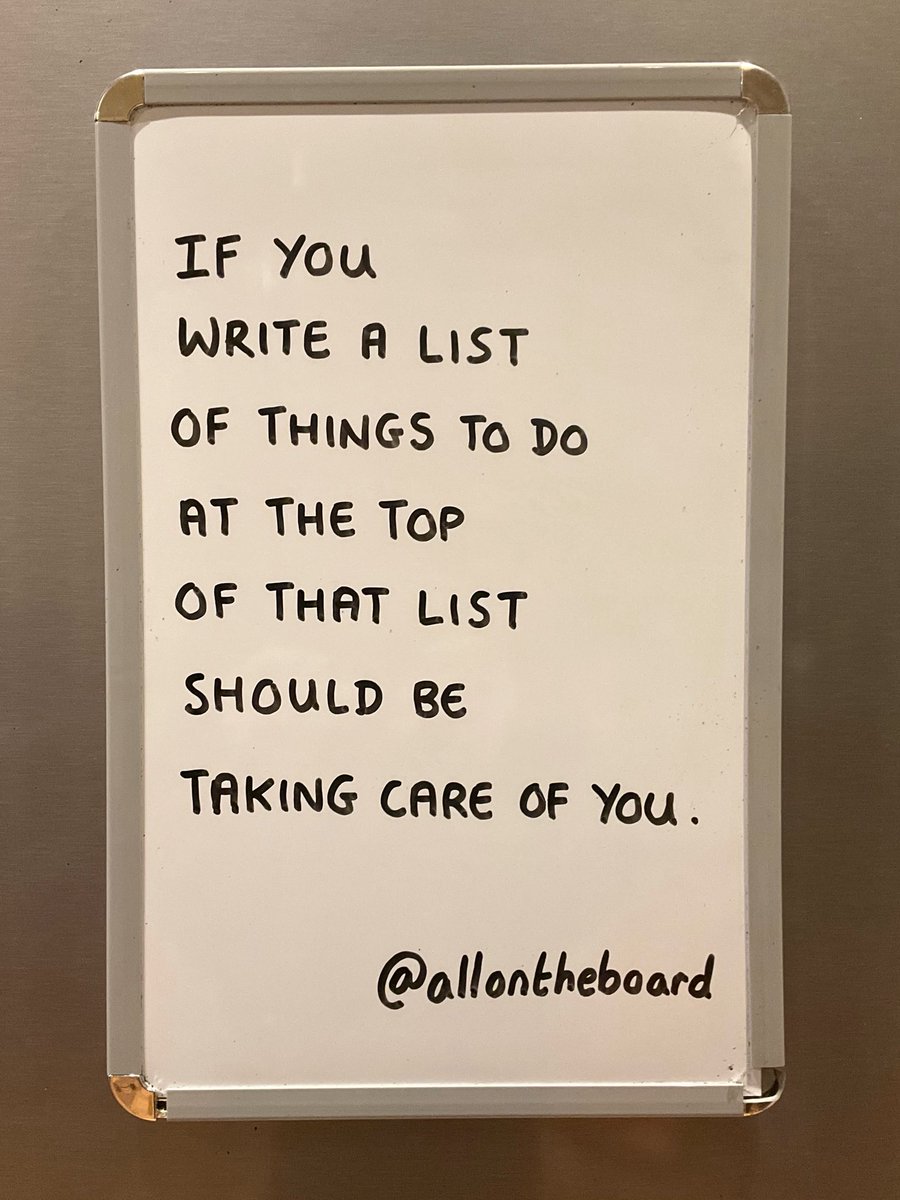 IF YOU
WRITE A LIST
OF THINGS TO DO
AT THE TOP
OF THAT LIST
SHOULD BE
TAKING CARE OF YOU.
@allontheboard